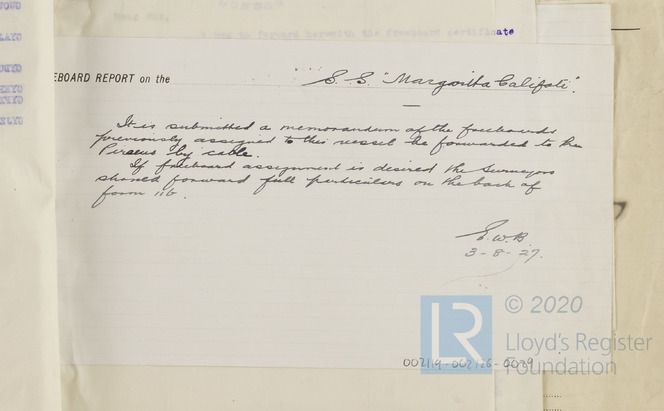 ate
EBOARD REPORT on the
S. S. "Margarita Califati".
It is submitted a memorandum of the freeboards
previously assigned to this vessel be forwarded to the
Piraeus by cable.
If freeboard assignment is desired the Surveyors
should forward full particulars on the back of
form 11b.
E.W.B.
3-8-27.
LR
© 2020
Lloyd's Register
Foundation
002119-002126-0039